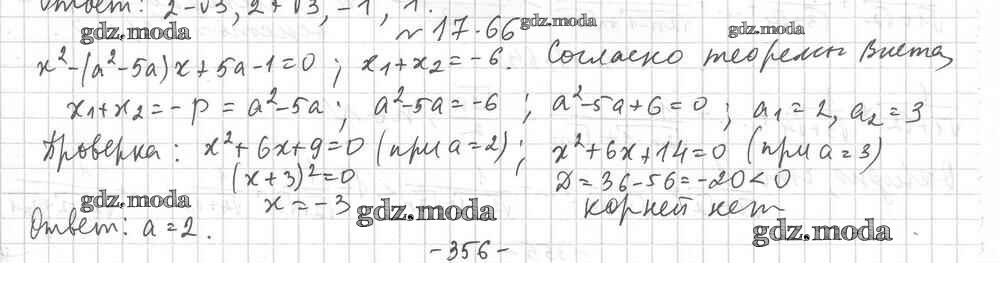 Ответ: 2-√3, 2+√3, -1, 1.
gdz.moda № 17.66 gdz.moda gdz.moda
x²-(a²-5a)x+5a-1=0; x₁+x₂=-6. Согласно теоремы Виета,
x₁+x₂=-p=a²-5a; a²-5a=-6; a²-5a+6=0; a₁=2, a₂=3
Проверка: x²+6x+9=0 (при a=2); x²+6x+14=0 (при a=3)
(x+3)²=0 D=36-56=-20<0
gdz.moda x=-3 gdz.moda корней нет
Ответ: a=2. gdz.moda
-356-